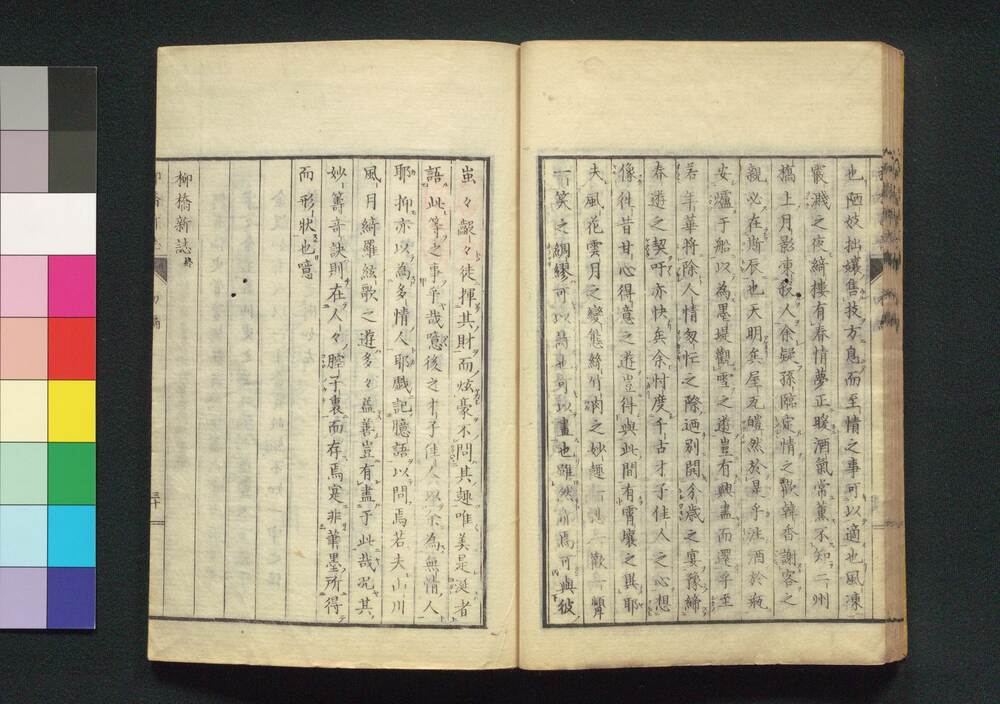 也陋妓拙孃售技方息而至情之事可以適也風凍
霰濺之夜綺樓有春情夢正暖酒氣常薰不知二州
橋上月影凍殺人余疑孫臨定情之歡韓香謝客之
親必在斯辰也天明矣屋瓦皚然於是乎注酒於瓶
安爐于船以為墨堤觀雪之遊豈有興盡而還乎至
若年華將除人情匆忙之際迺別開分歲之宴豫締
春遊之契吁亦快矣余忖度千古才子佳人之心想
像往昔甘心得意之遊豈得與此間有霄壤之異耶
夫風花雲月之變態絲竹肉之妙趣一歡一顰
一笑之綢繆可以 也可以畫也雖然 焉可與彼
蚩々齪々徒揮其財而炫豪不問其趣唯美是涎者
語此等之事乎哉噫後之才子佳人以余為無情人
耶抑亦以為多情人耶戲記臆語以問焉若夫山川
風月綺羅絃歌之遊多々益善豈有盡于此哉況其
妙籌奇訣則在人々腔子裏而存焉寔非筆墨所得
而形狀也噫
柳橋新誌終
三十